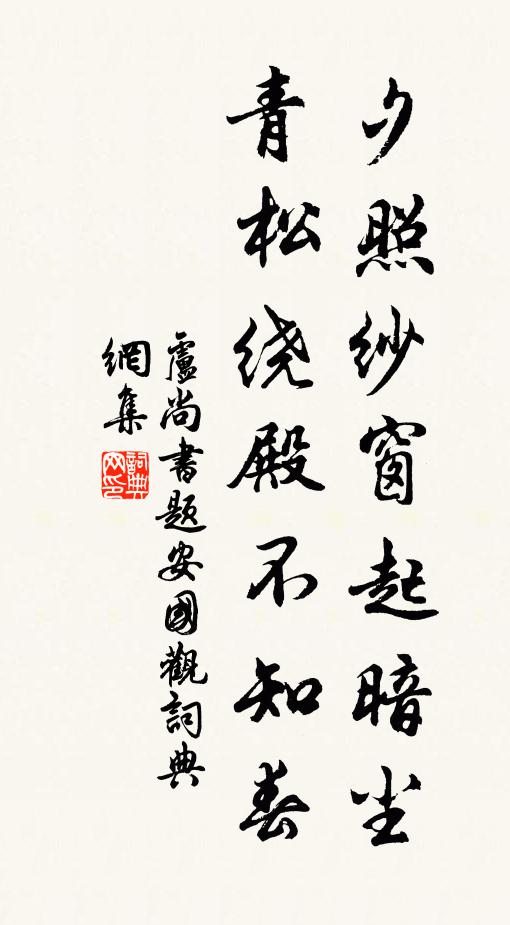 夕照纱窗起暗尘
青松绕殿不知春
盧尚書題安國觀詞典
網集
詞典
网印